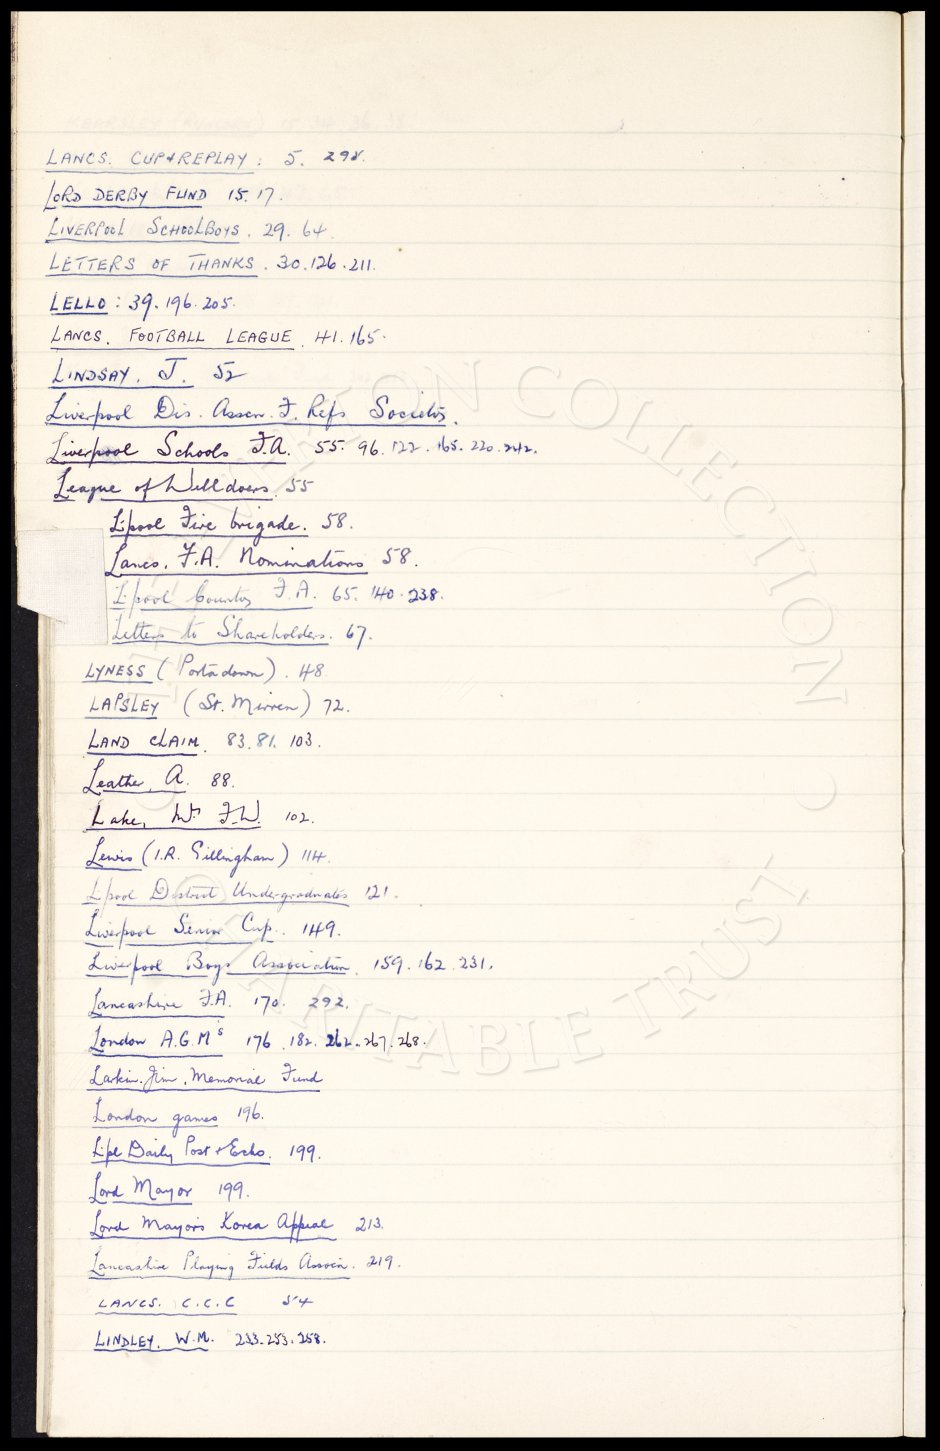 LANCS. CUP & REPLAY : 5. 298.
LORD DERBY FUND 15. 17.
LIVERPOOL SCHOOLBOYS. 29. 64.
LETTERS OF THANKS. 30. 126. 211.
LELLO : 39. 196. 205.
LANCS. FOOTBALL LEAGUE. 41. 165.
LINDSAY. J. 52
Liverpool Dis. Assen. F. Refs Society.
Liverpool Schools F.A. 55. 96. 122. 165. 220. 242.
League of Welldoers. 55
L'pool Fire brigade. 58.
Lancs. F.A. Nominations 58.
L'pool County F.A. 65. 140. 238.
Letters to Shareholders. 67.
LYNESS (Portadown). 48
LAPSLEY (St. Mirren) 72.
LAND CLAIM. 83. 81. 103.
Leather, A. 88.
Lake, Mr F.W. 102.
Lewis (I.R. Gillingham) 114.
L'pool District Undergraduates 121.
Liverpool Senior Cup. 149.
Liverpool Boys Association. 159. 162. 231.
Lancashire F.A. 170. 292.
London A.G.M's 176. 182. 262. 267. 268.
Larkin. Jim. Memorial Fund
London games 196.
L'pl Daily Post & Echo. 199.
Lord Mayor 199.
Lord Mayor's Korea Appeal 213.
Lancashire Playing Fields Associn. 219.
LANCS. C.C.C 54
LINDLEY. W.M. 233. 253. 258.
COLLECTION
CHARITABLE TRUST